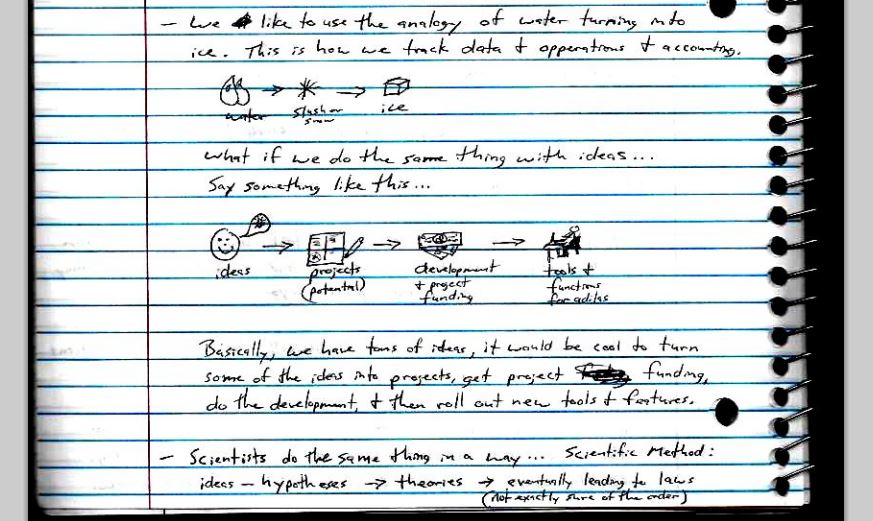 - We like to use the analogy of water turning into
ice. This is how we track data & opperations & accounting.
water → slush or snow → ice
What if we do the same thing with ideas...
Say something like this...
ideas → projects (potential) → development & project funding → tools & functions for adilas
Basically, we have tons of ideas, it would be cool to turn
some of the ideas into projects, get project funding,
do the development, & then roll out new tools & features.
- Scientists do the same thing in a way... Scientific Method:
ideas - hypotheses → theories → eventually leading to laws
(not exactly sure of the order)